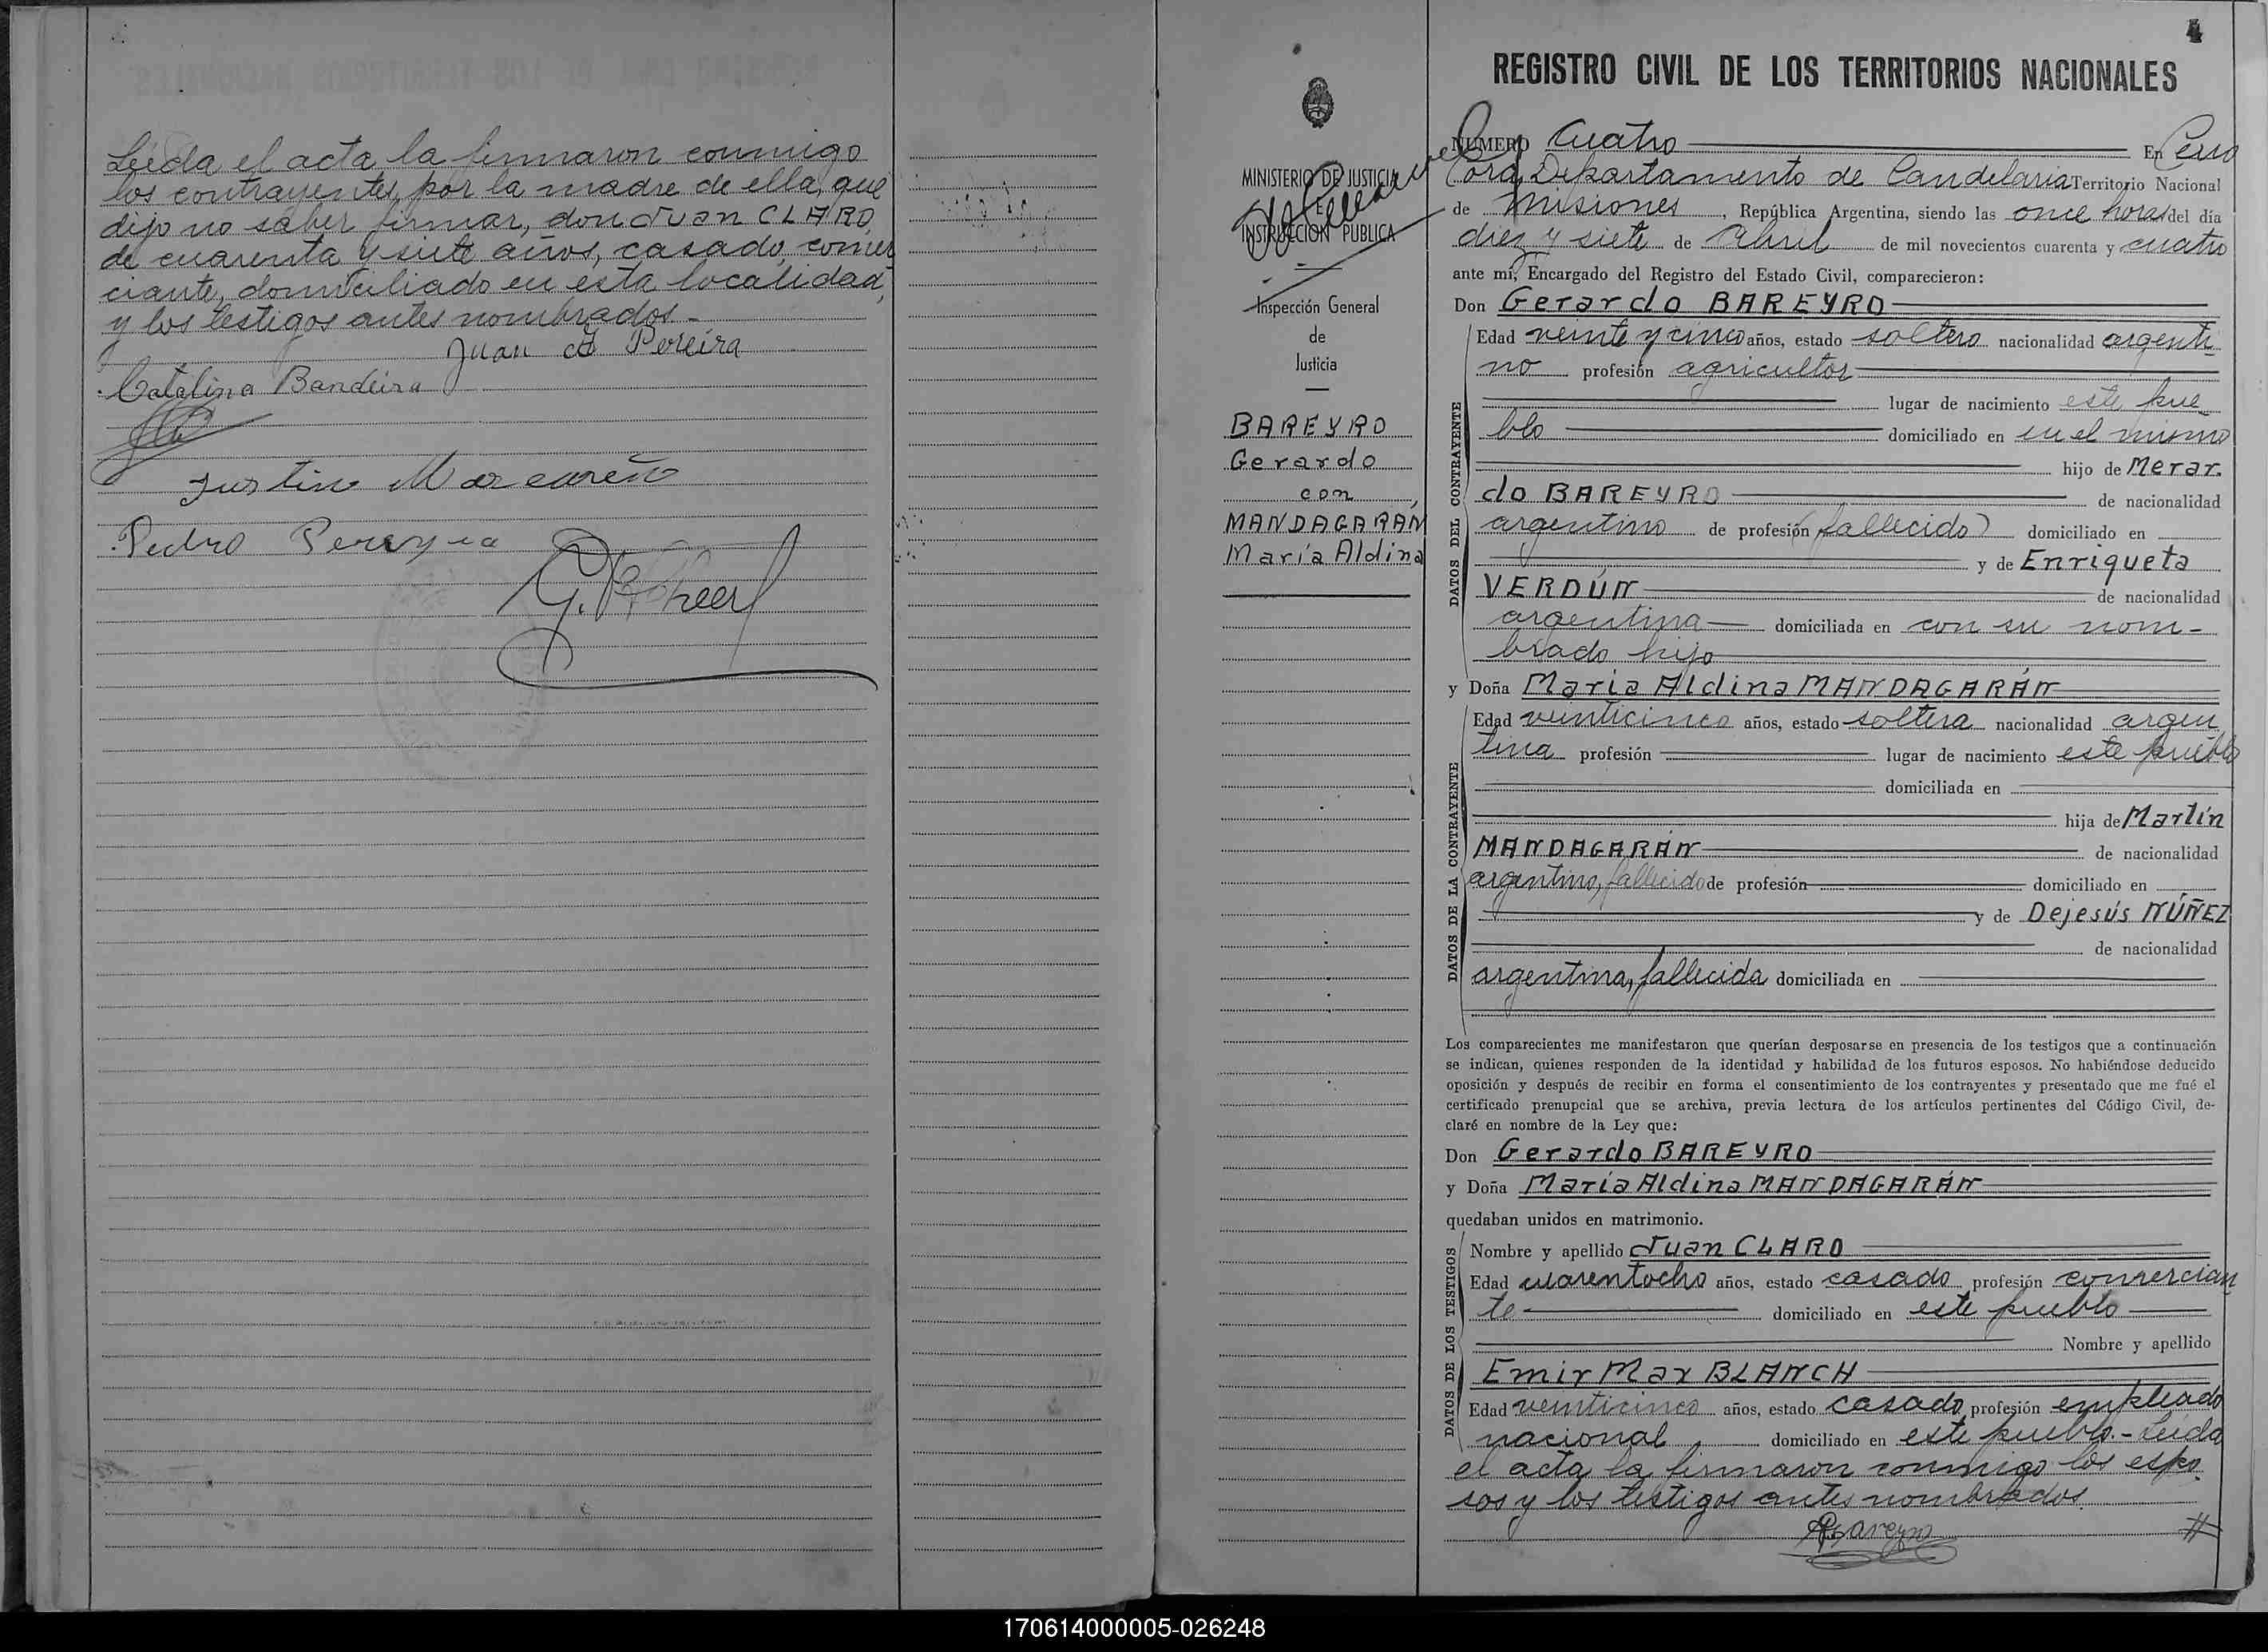 Leída el acta la firmaron conmigo
los contrayentes, por la madre de ella, que
dijo no saber firmar, don Juan CLARO,
de cuarenta y siete años, casado, comer
ciante, domiciliado en esta localidad,
y los testigos antes nombrados.-
Juan A Pereira
Catalina Bandeira
Justino
Pedro Pereyra
4
REGISTRO CIVIL DE LOS TERRITORIOS NACIONALES
MINISTERIO DE JUSTICIA
E
INSTRUCCIÓN PUBLICA
Inspección General
de
Justicia
BAREYRO
Gerardo
con
MANDAGARÁN
María Aldina
NUMERO Cuatro En Cerro
Corá, Departamento de Candelaria Territorio Nacional
de Misiones, República Argentina, siendo las once horas del día
diez y siete de Abril de mil novecientos cuarenta y cuatro
ante mí, Encargado del Registro del Estado Civil, comparecieron:
Don Gerardo BAREYRO
DATOS DEL CONTRAYENTE
Edad veinte y cinco años, estado soltero nacionalidad argenti-
no profesión agricultor
lugar de nacimiento este pue-
blo domiciliado en en el mismo
hijo de Merar-
do BAREYRO de nacionalidad
argentino de profesión (fallecido) domiciliado en
y de Enriqueta
VERDÚN de nacionalidad
argentina domiciliada en con su nom-
brado hijo
y Doña María Aldina MANDAGARÁN
DATOS DE LA CONTRAYENTE
Edad veinticinco años, estado soltera nacionalidad argen
tina profesión lugar de nacimiento este pueblo
domiciliada en
hija de Martín
MANDAGARÁN de nacionalidad
argentino, fallecido de profesión domiciliado en
y de Dejesús NÚÑEZ
de nacionalidad
argentina, fallecida domiciliada en
Los comparecientes me manifestaron que querían desposarse en presencia de los testigos que a continuación
se indican, quienes responden de la identidad y habilidad de los futuros esposos. No habiéndose deducido
oposición y después de recibir en forma el consentimiento de los contrayentes y presentado que me fué el
certificado prenupcial que se archiva, previa lectura de los artículos pertinentes del Código Civil, de-
claré en nombre de la Ley que:
Don Gerardo BAREYRO
y Doña María Aldina MANDAGARÁN
quedaban unidos en matrimonio.
DATOS DE LOS TESTIGOS
Nombre y apellido Juan CLARO
Edad cuarentocho años, estado casado profesión comercian
te domiciliado en este pueblo
Nombre y apellido
Emir Max BLANCH
Edad veinticinco años, estado casado profesión empleado
nacional domiciliado en este pueblo.- Leída
el acta la firmaron conmigo los espo-
sos y los testigos antes nombrados.
170614000005-026248